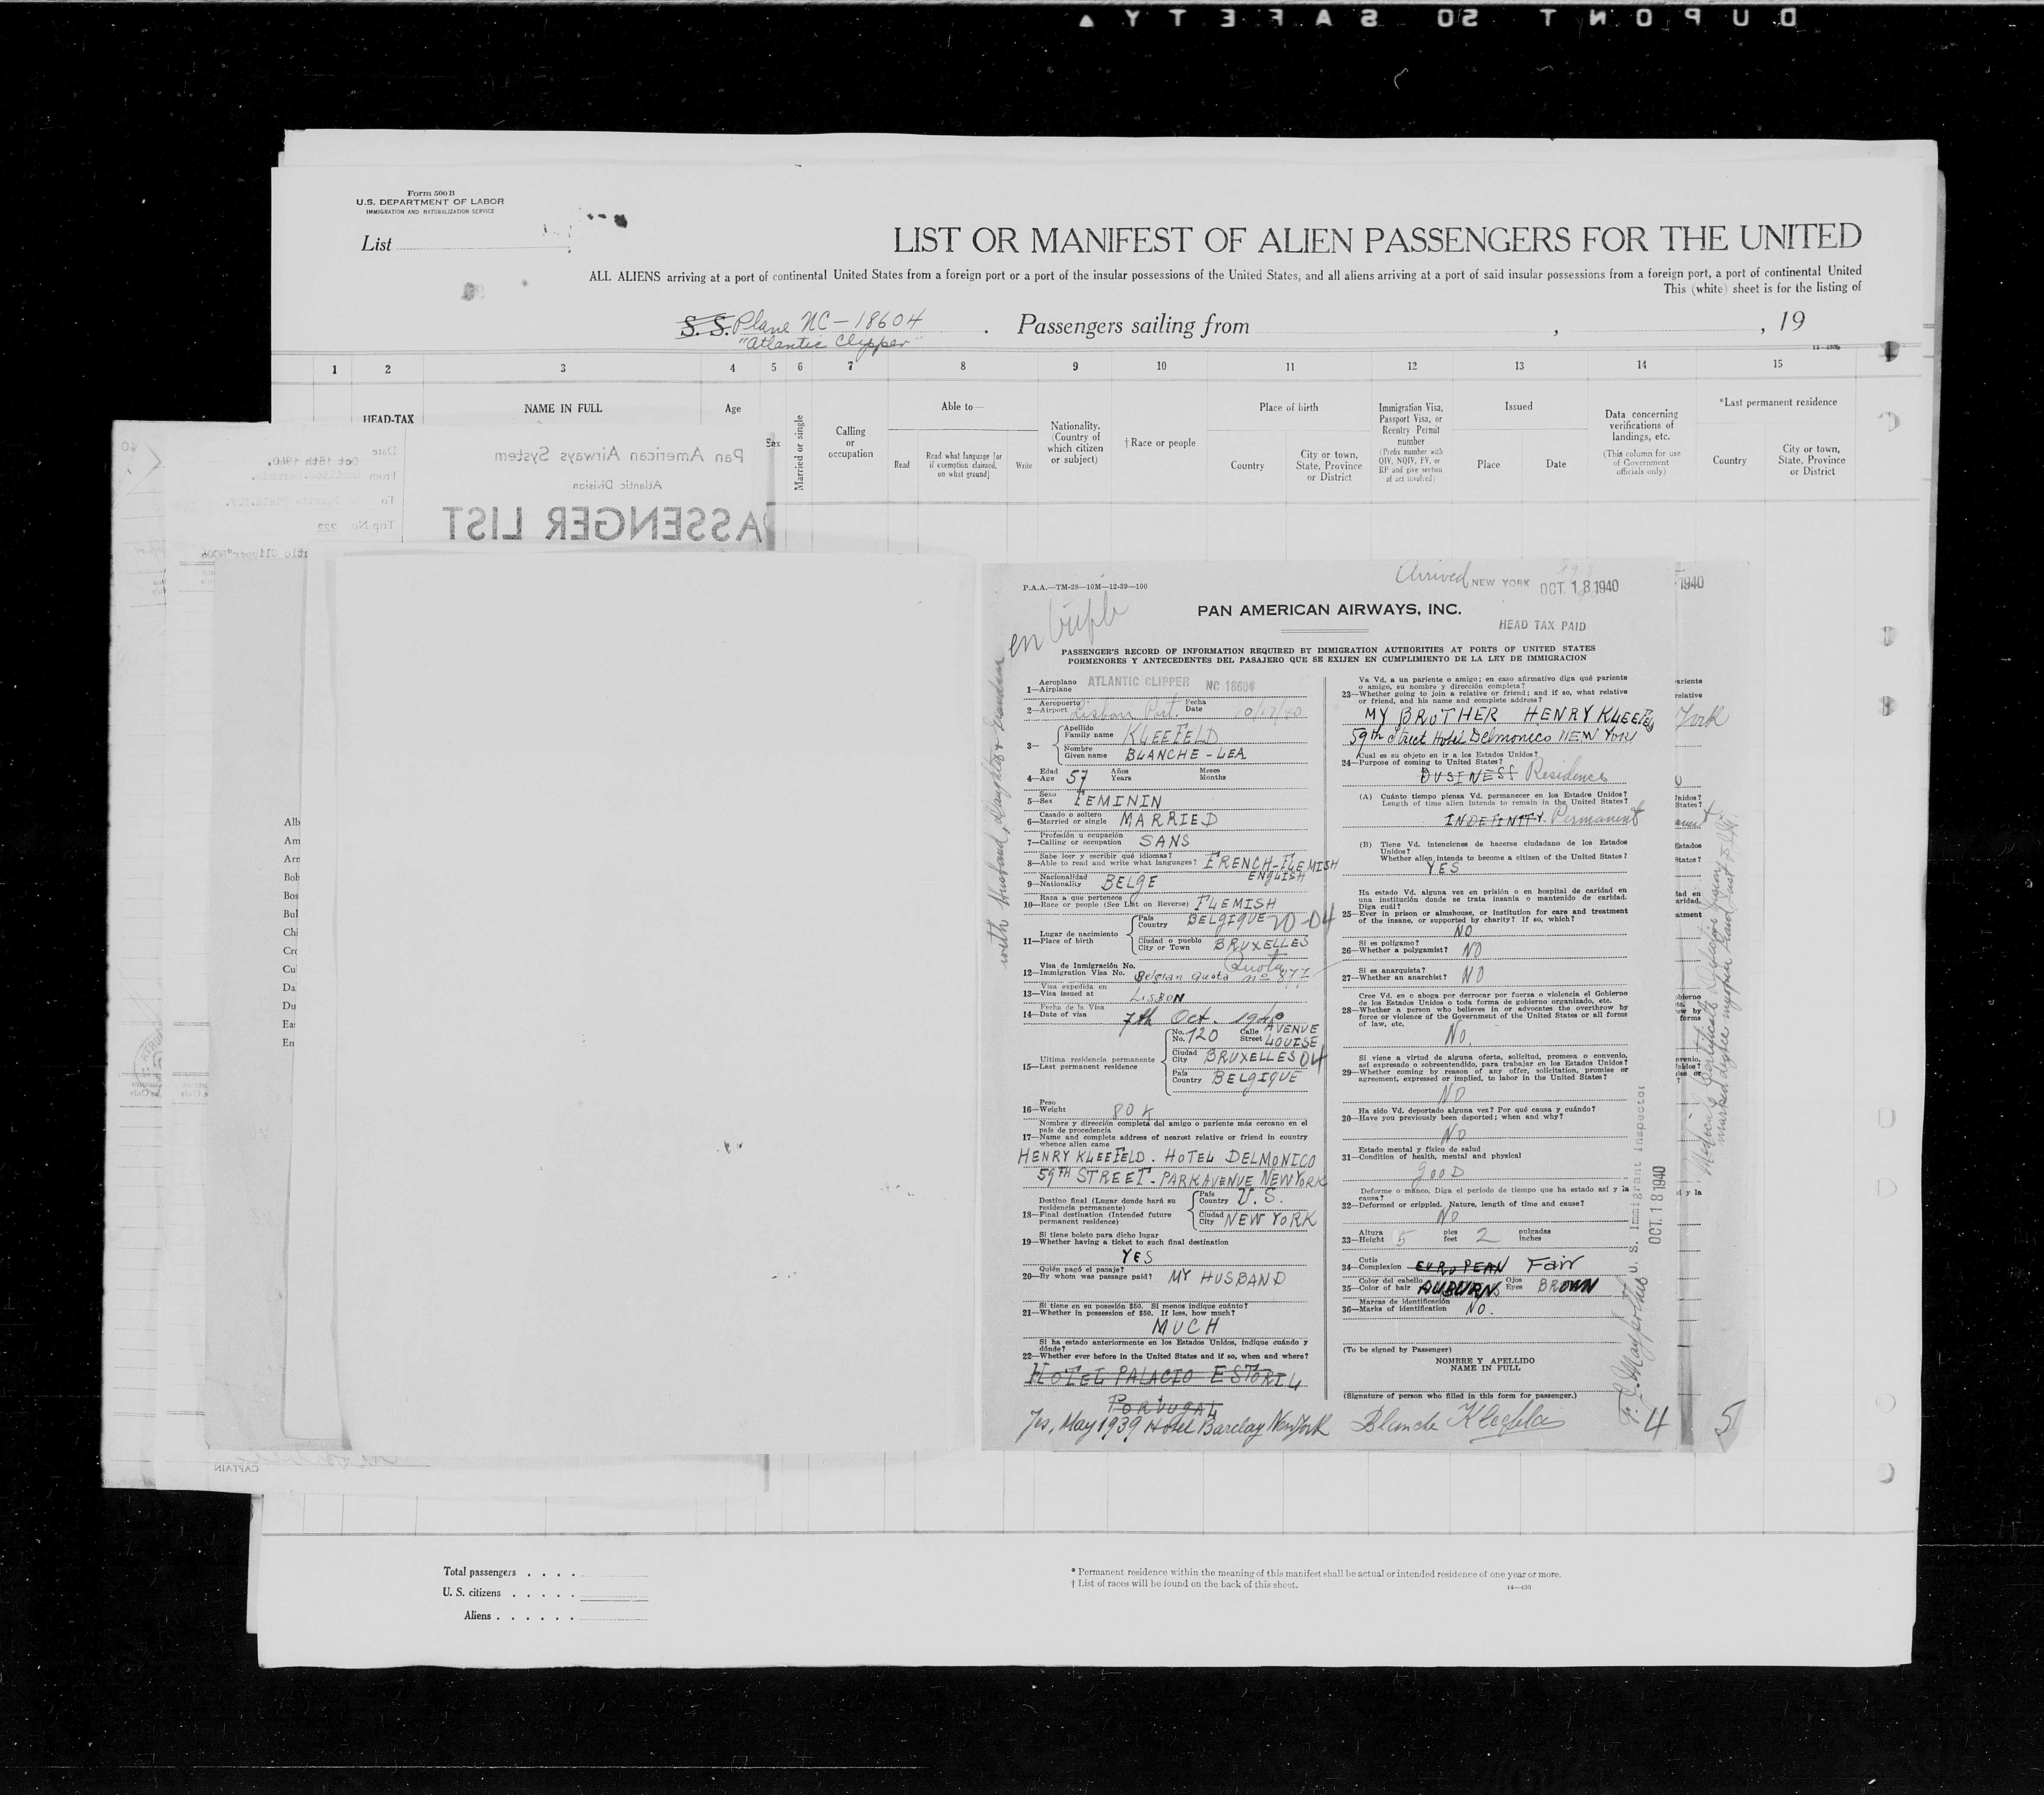 DUPONT SAFETY
Form 500 B
U.S. DEPARTMENT OF LABOR
IMMIGRATION AND NATURALIZATION SERVICE
List
LIST OR MANIFEST OF ALIEN PASSENGERS FOR THE UNITED
ALL ALIENS arriving at a port of continental United States from a foreign port or a port of the insular possessions of the United States, and all aliens arriving at a port of said insular possessions from a foreign port, a port of continental United
This (white) sheet is for the listing of
S. S. Plane NC-18604
"Atlantic Clipper"
Passengers sailing from , , 19
1 2 3 4 5 6 7 8 9 10 11 12 13 14 15
HEAD-TAX
NAME IN FULL
Age
Sex
Married or single
Calling or occupation
Able to—
Read
Read what language [or if exemption claimed, on what ground]
Write
Nationality. (Country of which citizen or subject)
† Race or people
Place of birth
Country
City or town, State, Province or District
Immigration Visa, Passport Visa, or Reentry Permit number
(Prefix number with QIV, NQIV, PV, or RP and give section of act involved)
Issued
Place
Date
Data concerning verifications of landings, etc.
(This column for use of Government officials only)
*Last permanent residence
Country
City or town, State, Province or District
Pan American Airways System
Atlantic Division
PASSENGER LIST
Date Oct 18th 1940.
From
To
Trip No. 222
CAPTAIN
Alb
Am
Arn
Boh
Bos
Bul
Chi
Cro
Cul
Da
Du
Eas
En
P.A.A.—TM-28—10M—12-39—100
Arrived NEW YORK OCT. 18 1940
PAN AMERICAN AIRWAYS, INC.
HEAD TAX PAID
PASSENGER'S RECORD OF INFORMATION REQUIRED BY IMMIGRATION AUTHORITIES AT PORTS OF UNITED STATES
PORMENORES Y ANTECEDENTES DEL PASAJERO QUE SE EXIJEN EN CUMPLIMIENTO DE LA LEY DE IMMIGRACION
with husband, daughter &
Aeroplano
1—Airplane ATLANTIC CLIPPER NC 18604
Aeropuerto Fecha
2—Airport Lisbon Port. Date 10/17/40
3— Apellido
Family name KLEEFELD
Nombre
Given name BLANCHE-LEA
Edad Años Meses
4—Age 57 Years Months
Sexo
5—Sex FEMININ
Casado o soltero
6—Married or single MARRIED
Profesión u ocupación
7—Calling or occupation SANS
Sabe leer y escribir qué idiomas?
8—Able to read and write what languages? FRENCH-FLEMISH
ENGLISH
Nacionalidad
9—Nationality BELGE
Raza a que pertenece
10—Race or people (See List on Reverse) FLEMISH
Lugar de nacimiento
11—Place of birth
País
Country BELGIQUE 20-04
Ciudad o pueblo
City or Town BRUXELLES
Visa de Inmigración No. Quota
12—Immigration Visa No. Belgian Quota no 877
Visa expedida en
13—Visa issued at LISBON
Fecha de la Visa
14—Date of visa 7th Oct. 1940
Ultima residencia permanente
15—Last permanent residence
No. Calle AVENUE
No. 120 Street LOUISE
Ciudad
City BRUXELLES 04
País
Country BELGIQUE
Peso
16—Weight 80 K
Nombre y dirección completa del amigo o pariente más cercano en el
país de procedencia
17—Name and complete address of nearest relative or friend in country
whence alien came
HENRY KLEEFELD. HOTEL DELMONICO
59TH STREET-PARK AVENUE NEW YORK
Destino final (Lugar donde hará su
residencia permanente)
18—Final destination (Intended future
permanent residence)
País
Country U.S.
Ciudad
City NEW YORK
Si tiene boleto para dicho lugar
19—Whether having a ticket to such final destination
YES
Quién pagó el pasaje?
20—By whom was passage paid? MY HUSBAND
Si tiene en su posesión $50. Si menos indique cuánto?
21—Whether in possession of $50. If less, how much?
MUCH
Si ha estado anteriormente en los Estados Unidos, indique cuándo y
dónde?
22—Whether ever before in the United States and if so, when and where?
HOTEL PALACIO ESTORIL
PORTUGAL
Yes, May 1939 Hotel Barclay New York
Va Vd. a un pariente o amigo; en caso afirmativo diga qué pariente
o amigo, su nombre y dirección completa?
23—Whether going to join a relative or friend; and if so, what relative
or friend, and his name and complete address?
MY BROTHER HENRY KLEEFELD
59th Street Hotel Delmonico NEW YORK
Cual es su objeto en ir a los Estados Unidos?
24—Purpose of coming to United States?
BUSINESS Residence
(A) Cuánto tiempo piensa Vd. permanecer en los Estados Unidos?
Length of time alien intends to remain in the United States?
INDEFINITY Permanent
(B) Tiene Vd. intenciones de hacerse ciudadano de los Estados
Unidos?
Whether alien intends to become a citizen of the United States?
YES
Ha estado Vd. alguna vez en prisión o en hospital de caridad en
una institución donde se trata insania o mantenido de caridad.
Diga cuál?
25—Ever in prison or almshouse, or institution for care and treatment
of the insane, or supported by charity? If so, which?
NO
Si es polígamo?
26—Whether a polygamist? NO
Si es anarquista?
27—Whether an anarchist? NO
Cree Vd. en o aboga por derrocar por fuerza o violencia el Gobierno
de los Estados Unidos o toda forma de gobierno organizado, etc.
28—Whether a person who believes in or advocates the overthrow by
force or violence of the Government of the United States or all forms
of law, etc.
NO.
Si viene a virtud de alguna oferta, solicitud, promesa o convenio,
así expresado o sobreentendido, para trabajar en los Estados Unidos?
29—Whether coming by reason of any offer, solicitation, promise or
agreement, expressed or implied, to labor in the United States?
NO
Ha sido Vd. deportado alguna vez? Por qué causa y cuándo?
30—Have you previously been deported; when and why?
NO
Estado mental y físico de salud
31—Condition of health, mental and physical
good
Deforme o manco. Diga el período de tiempo que ha estado así y la
causa?
32—Deformed or crippled. Nature, length of time and cause?
NO
Altura pies pulgadas
33—Height 5 feet 2 inches
Cutis
34—Complexion EUROPEAN Fair
Color del cabello Ojos
35—Color of hair AUBURN Eyes BROWN
Marcas de identificación
36—Marks of identification NO.
(To be signed by Passenger)
NOMBRE Y APELLIDO
NAME IN FULL
(Signature of person who filled in this form for passenger.)
Blanche Kleefeld
U. S. Immigrant Inspector
OCT. 18 1940
4
1940
York
5
Total passengers . . . .
U. S. citizens . . . . .
Aliens . . . . . .
* Permanent residence within the meaning of this manifest shall be actual or intended residence of one year or more.
† List of races will be found on the back of this sheet.
14—430